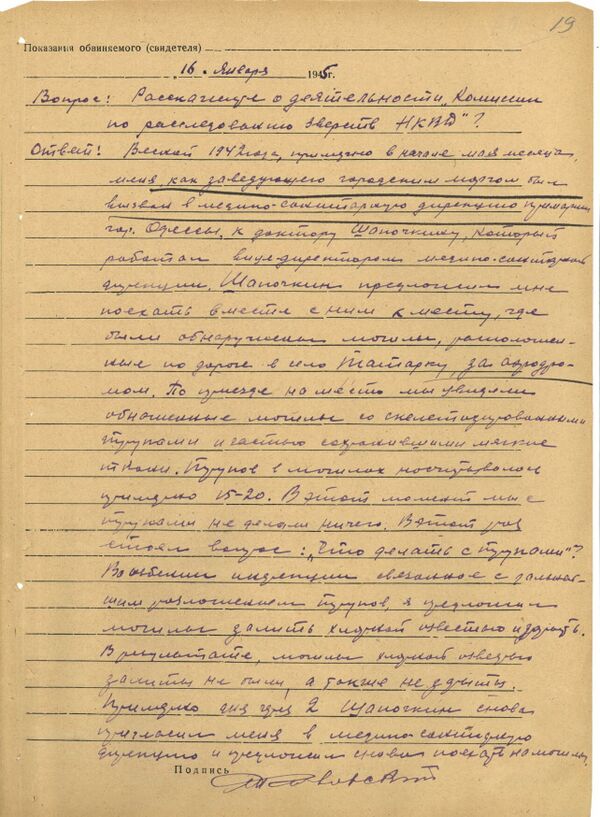 19
Показания обвиняемого (свидетеля)
16. Января 1945г.
Вопрос: Расскажите о деятельности „Комиссии
по расследованию зверств НКВД"?
Ответ: Весной 1942 года, примерно в начале мая месяца,
меня, как заведующего городским моргом был
вызван в медико-санитарную дирекцию примарии
гор. Одессы, к доктору Шапочкину, который
работал вице-директором медико-санитарной
дирекции. Шапочкин предложил мне
поехать вместе с ним к месту, где
были обнаружены могилы, расположен-
ные по дороге в село Татарку, за аэродро-
мом. По приезде на место мы увидели
обнаженные могилы со скелетизированными
трупами и частью сохранившими мягкие
ткани. Трупов в могилах насчитывалось
примерно 15-20. В этот момент мы с
трупами не делали ничего. В этот раз
стоял вопрос: „Что делать с трупами"?
Во избежании инфекции связанное с дальней-
шим разложением трупов, я предложил
могилы залить жидкой известью и зарыть.
В результате, могилы жидкой известью
залиты не были, а также не зарыты.
Примерно дня через 2 Шапочкин снова
пригласил меня в медико-санитарную
дирекцию и предложил снова поехать на могилы.
Подпись